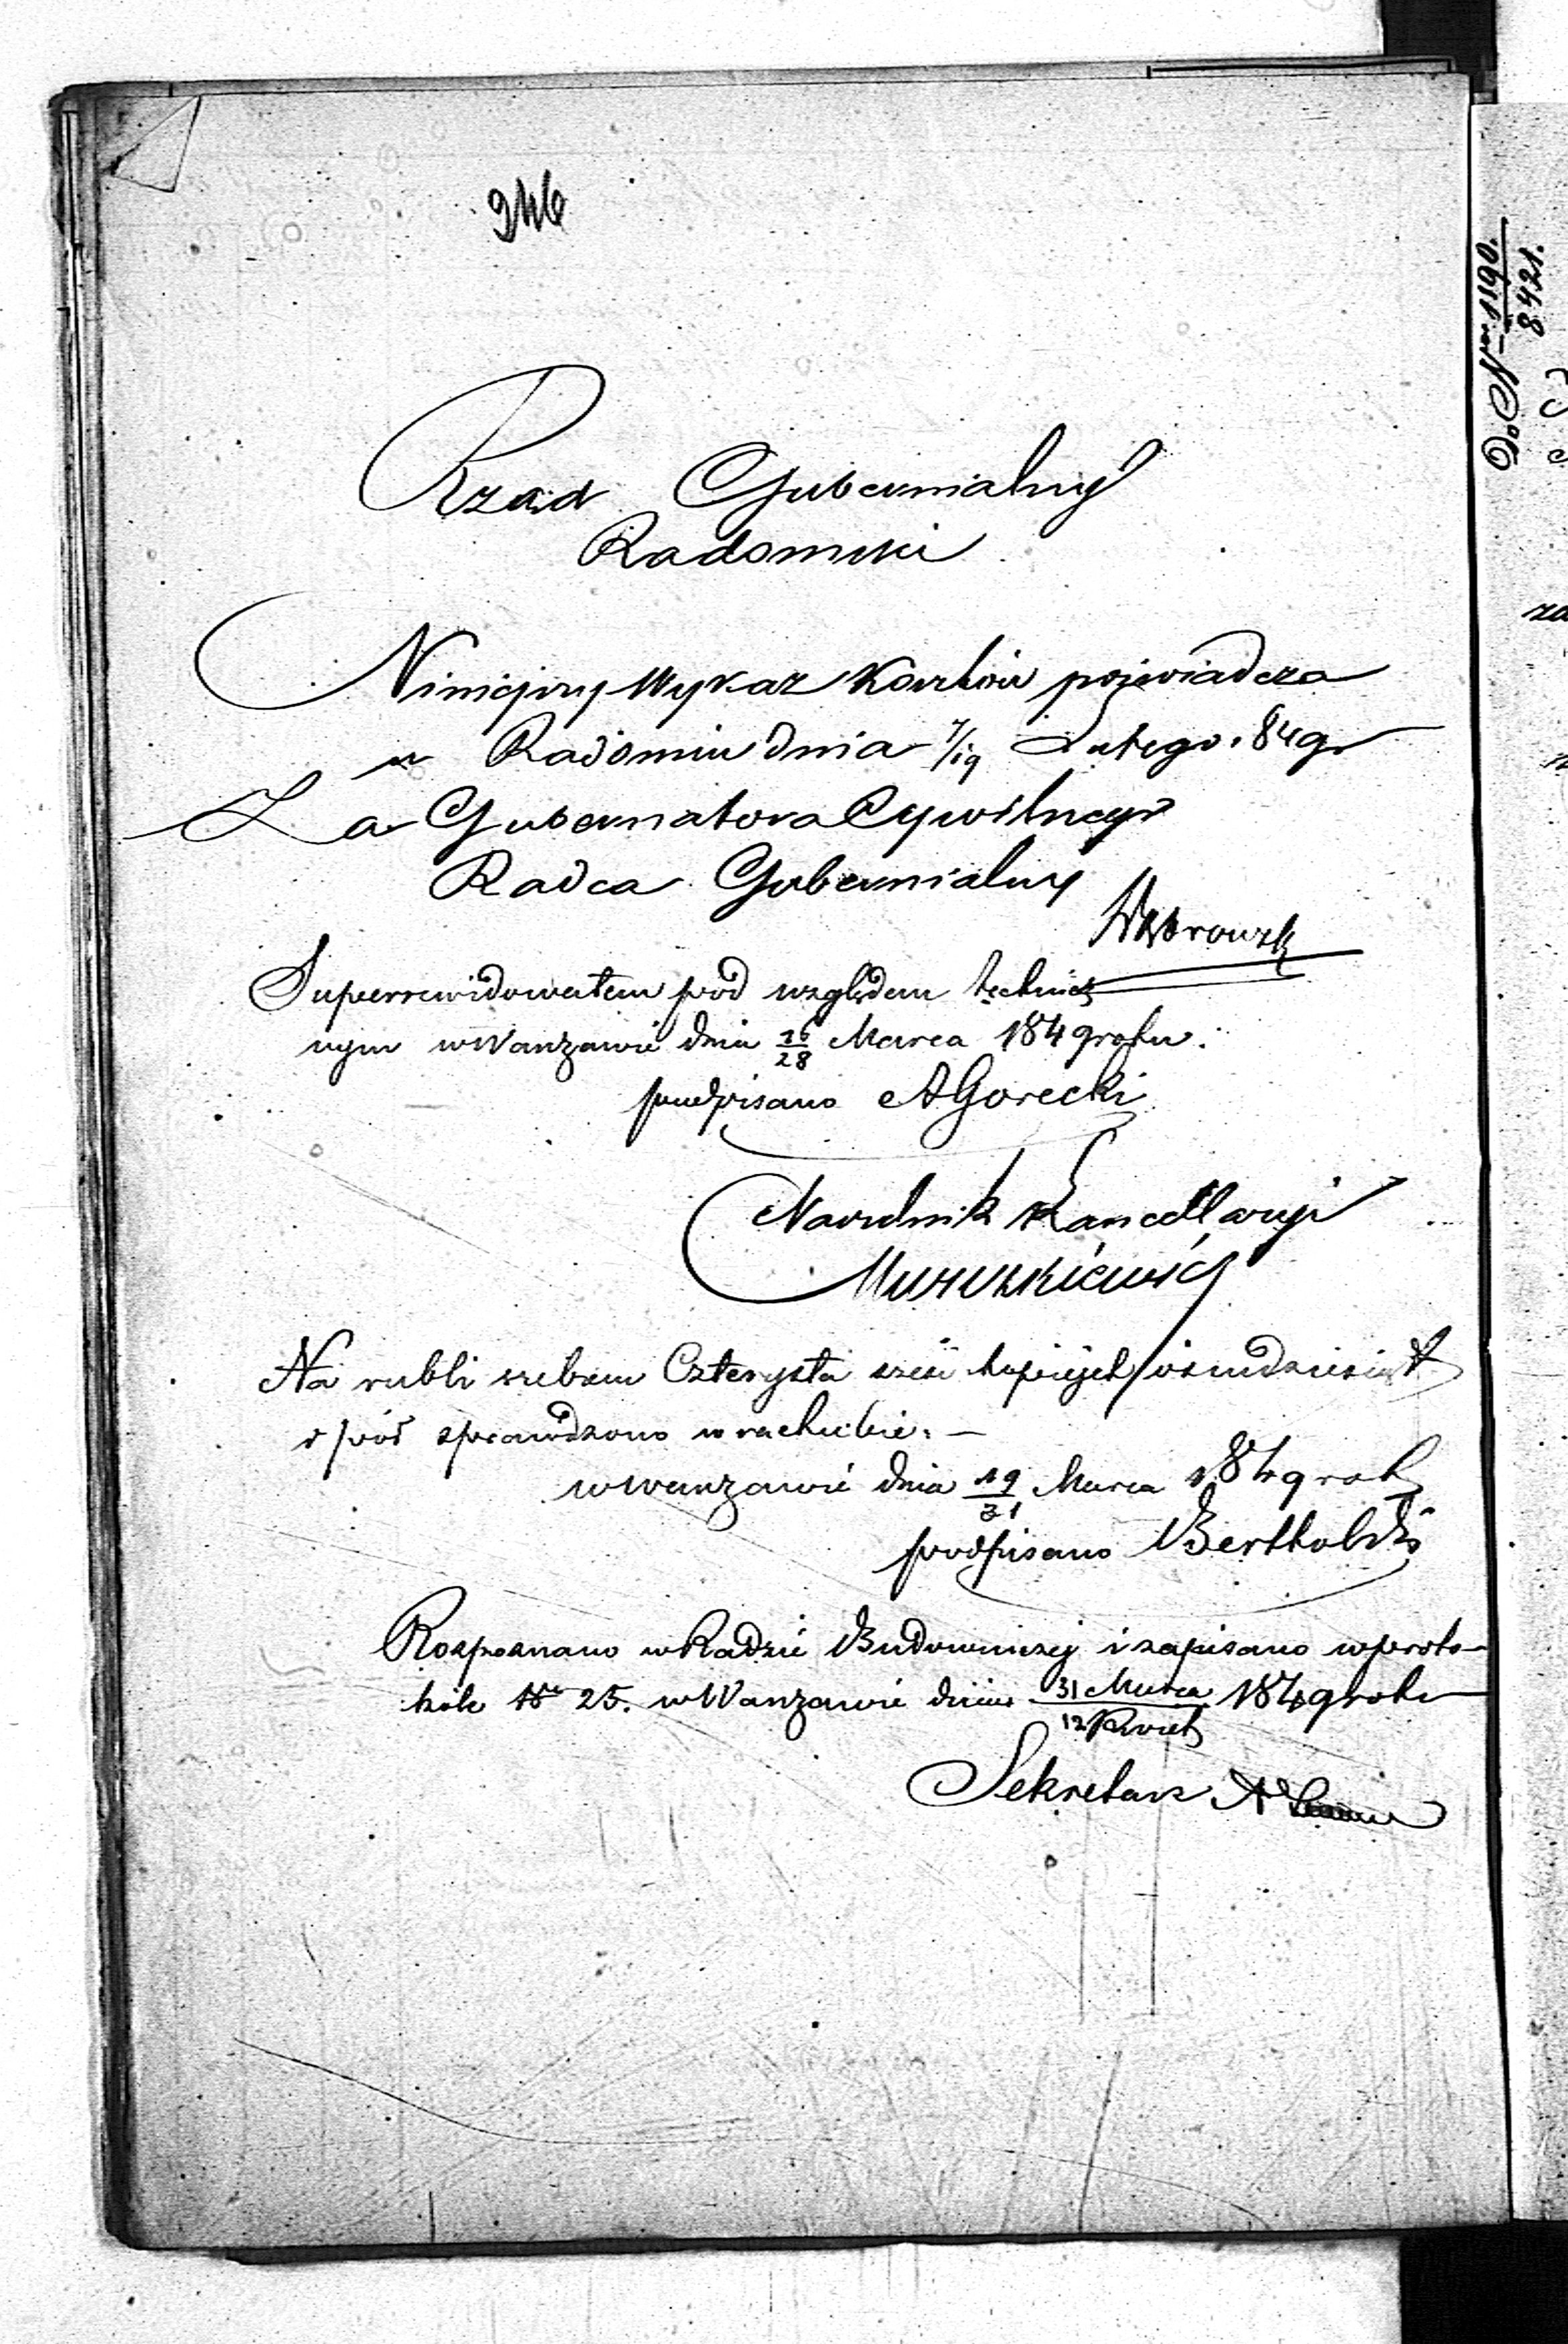 946
Rząd Gubernialny
Radomski
Niniejszy Wykaz Kosztów poświadcza
w Radomiu dnia 7/19 Lutego 849 r
Za Gubernatora Cywilnego
Radca Gubernialny
Superrewidowałem pod względem technicz
nym w Warszawie dnia 16/28 Marca 1849 roku.
podpisano AGorecki
Naczelnik Kancellaryi
Na rubli srebrem Czterysta sześć kopiejek ośmdziesiąt
i pół sprawdzono w rachubie. —
w Warszawie dnia 19/31 Marca 1849 rok
podpisano Bertholdi
Rozpoznano w Radzie Budowniczej i zapisano w proto-
kóle No 25. w Warszawie dnia 31 Marca/12 Kwiet 1849 roku
Sekretarz
8421.